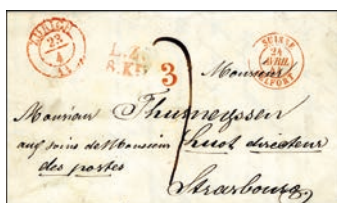 ZURICH
23
4
L.Z.
3
SUISSE
24
AVRIL
BELFORT
Monsieur
Monsieur Thurneyssen
aux soins de Monsieur Huot directeur
des postes
Strasbourg